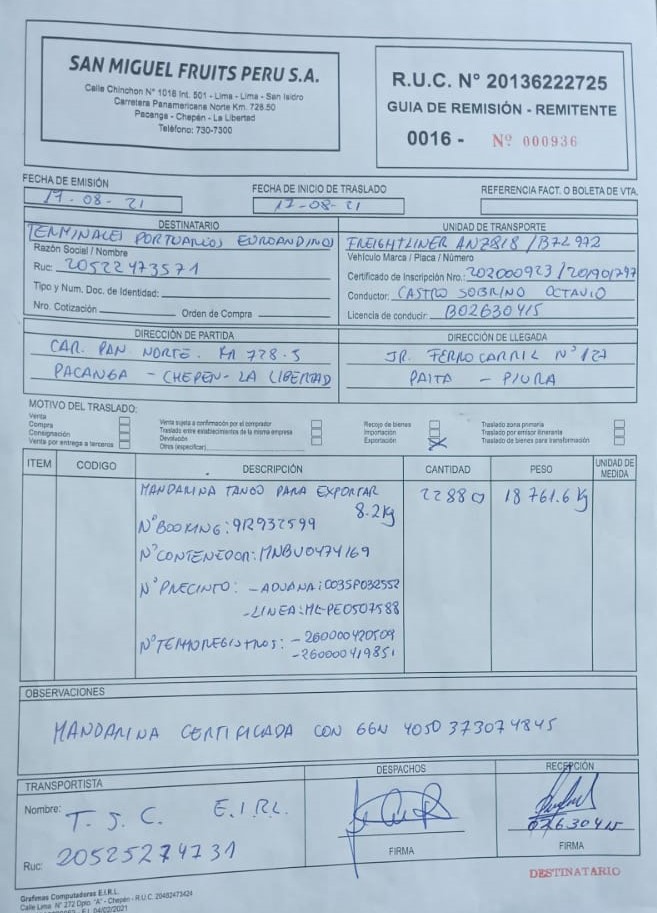 SAN MIGUEL FRUITS PERU S.A.
Calle Chinchon N° 1018 Int. 501 - Lima - Lima - San Isidro
Carretera Panamericana Norte Km. 728.50
Pacanga - Chepén - La Libertad
Teléfono: 730-7300
R.U.C. N° 20136222725
GUIA DE REMISIÓN - REMITENTE
0016 - Nº 000936
FECHA DE EMISIÓN
17-08-21
FECHA DE INICIO DE TRASLADO
17-08-21
REFERENCIA FACT. O BOLETA DE VTA.
DESTINATARIO
TERMINALES PORTUARIOS EUROANDINOS
Razón Social / Nombre
Ruc: 20522473571
Tipo y Num. Doc. de Identidad:
Nro. Cotización Orden de Compra
UNIDAD DE TRANSPORTE
FREIGHTLINER ANZ818 / B7L972
Vehículo Marca / Placa / Número
Certificado de Inscripción Nro.: 202000923 / 201901797
Conductor: CASTRO SOBRINO OCTAVIO
Licencia de conducir: B02630415
DIRECCIÓN DE PARTIDA
CAR. PAN NORTE. KM 728.5
PACANGA - CHEPEN - LA LIBERTAD
DIRECCIÓN DE LLEGADA
JR. FERROCARRIL N° 127
PAITA - PIURA
MOTIVO DEL TRASLADO:
Venta
Compra
Consignación
Venta por entrega a terceros
Venta sujeta a confirmación por el comprador
Traslado entre establecimientos de la misma empresa
Devolución
Otros (especificar)
Recojo de bienes
Importación
Exportación X
Traslado zona primaria
Traslado por emisor itinerante
Traslado de bienes para transformación
ITEM CODIGO DESCRIPCIÓN CANTIDAD PESO UNIDAD DE MEDIDA
MANDARINA TANGO PARA EXPORTAR 2288 18 761.6 Kg
8.2Kg
N° BOOKING: 912932599
N° CONTENEDOR: MNBU0474169
N° PRECINTO: - ADUANA: 003SP032552
- LINEA: ML-PE0507588
N° TERMOREGISTROS: - 260000420509
- 260000419851
OBSERVACIONES
MANDARINA CERTIFICADA CON GGN 4050373074845
TRANSPORTISTA
Nombre: T. J. C. E.I.R.L.
Ruc: 20525274731
DESPACHOS
FIRMA
RECEPCIÓN
02630415
FIRMA
DESTINATARIO
Grafimas Computadoras E.I.R.L.
Calle Lima N° 272 Dpto. "A" - Chepén - R.U.C. 20482473424